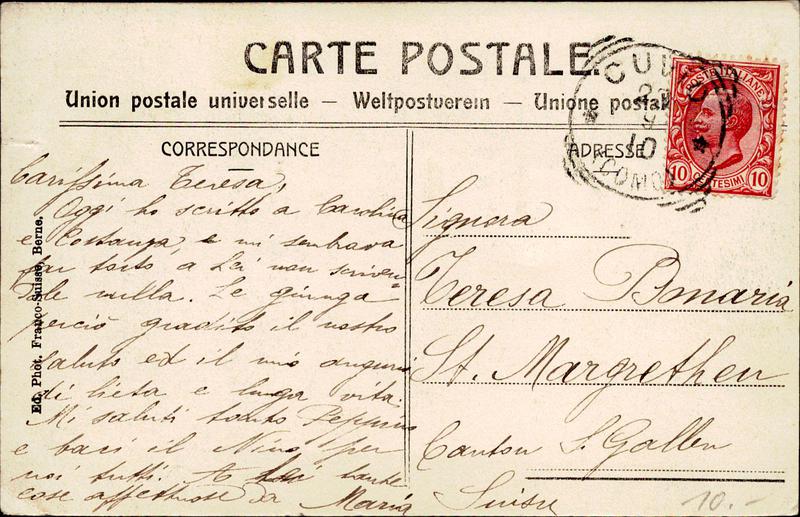 CARTE POSTALE.
Union postale universelle — Weltpostverein — Unione postale
CORRESPONDANCE
ADRESSE
POSTE ITALIANE
10 CENTESIMI 10
(COMO)
Ed. Phot. Franco-Suisse, Berne.
Carissima Teresa,
Oggi ho scritto a Carolina
e Costanza, e mi sembrava
far torto a Lei non scriven-
dole nulla. Le giunga
perciò gradito il nostro
saluto ed il mio augurio
di lieta e lunga vita.
Mi saluti tanto Peppino
e baci il Nino per
noi tutti. A Lei tante
cose affettuose da Maria
Signora
Teresa Bonaria
St. Margrethen
Canton S. Gallen
Suisse
10.-